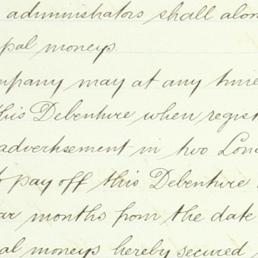 administrators shall alon
pal moneys
mpany may at any time
this Debenture when regist
advertisement in two Lon
o pay off this Debenture
ar months from the date
al moneys hereby secured